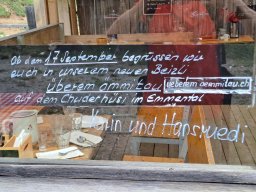 Ab dem 17. September begrüssen wir
euch in unserem neuen Beizli
Überem ämmitau
ueberem aemmitau.ch
auf dem Chuderhüsi im Emmental
Karin und Hansruedi